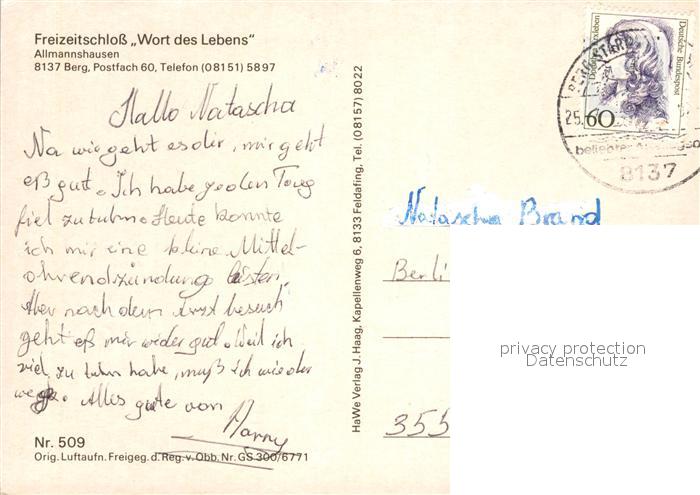 Freizeitschloß „Wort des Lebens"
Allmannshausen
8137 Berg, Postfach 60, Telefon (08151) 5897
Hallo Natascha
Na wie geht es dir, mir geht
eß gut. Ich habe jeden Tag
fiel zu tuhn. Heute konnte
ich mir eine kleine Mittel-
ohrendzündung leisten.
Aber nach dem Arzt besuch
geht eß mir wieder gut. Weil ich
viel zu tuhn habe, muß ich wieder
weg. Alles gute von
Nr. 509
Orig. Luftaufn. Freigeg. d. Reg. v. Obb. Nr. GS 300/6771
HaWe Verlag J. Haag, Kapellenweg 6, 8133 Feldafing, Tel. (08157) 8022
Deutsche Bundespost
60
25.
8137
Natascha Brand
Berli
355
privacy protection
Datenschutz